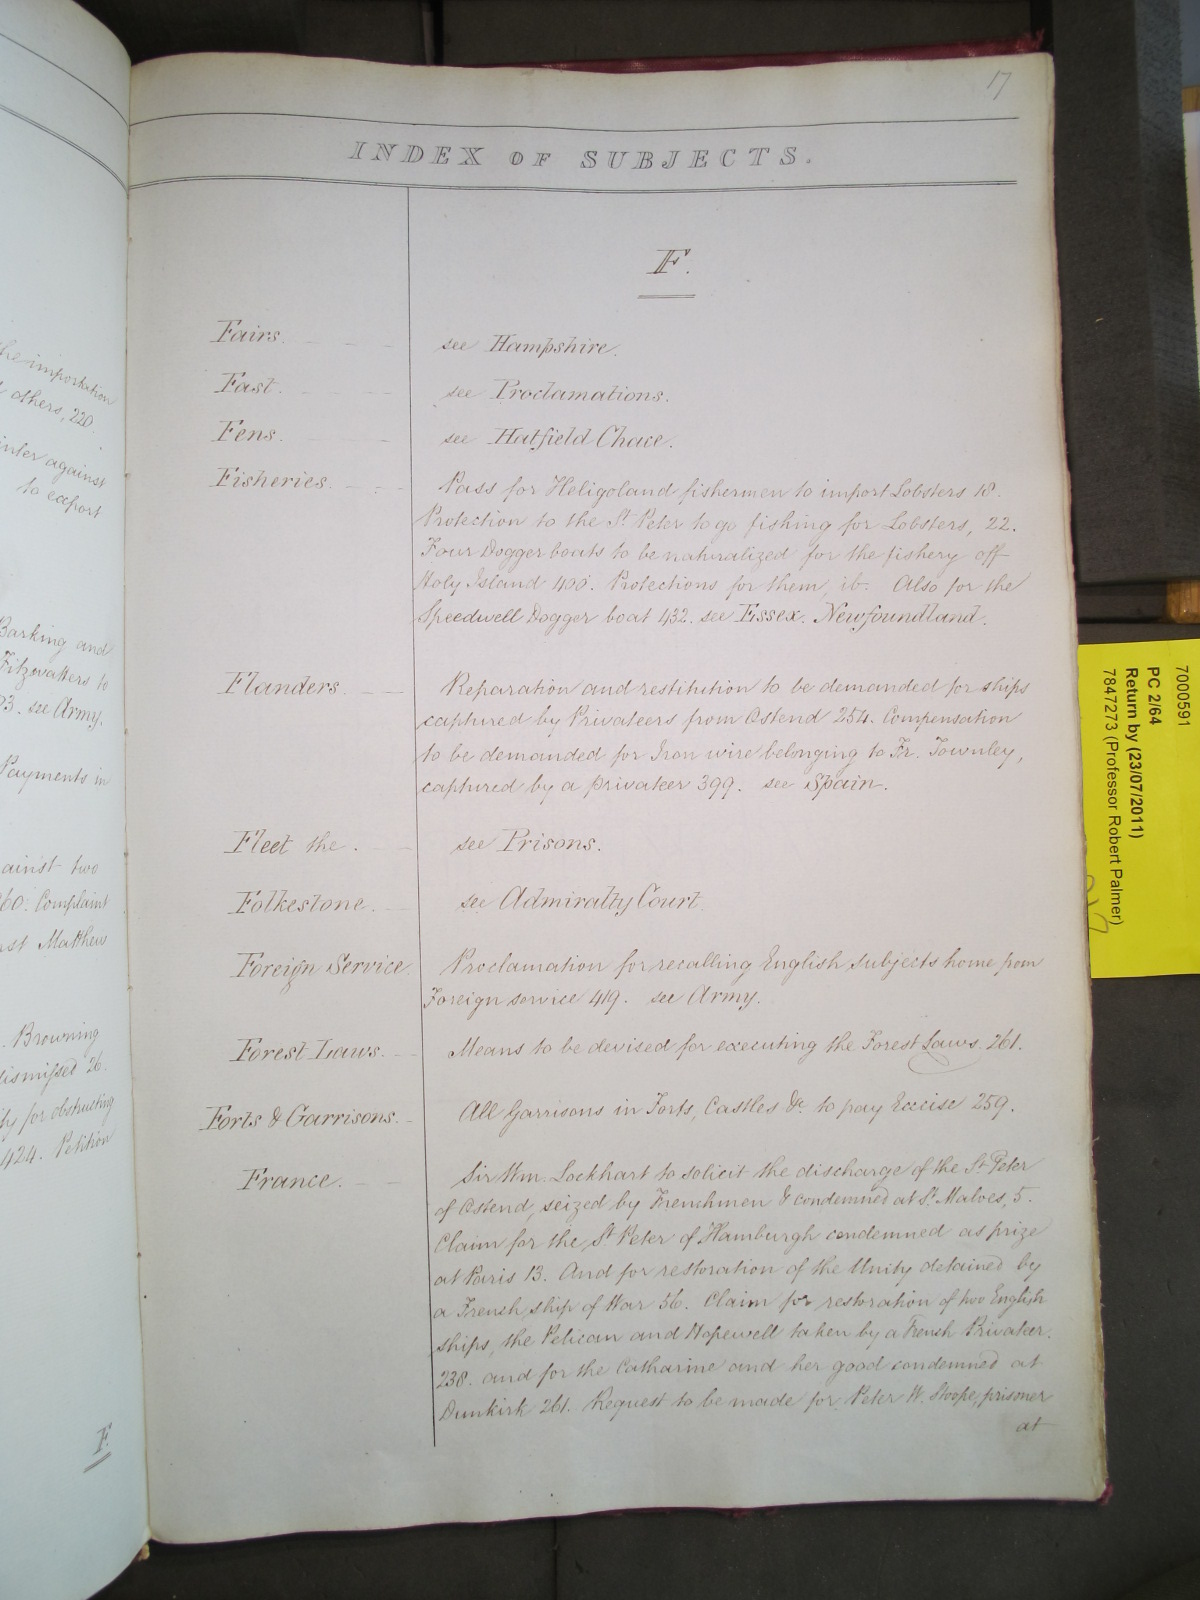 17
INDEX OF SUBJECTS.
F.
Fairs. see Hampshire.
Fast. see Proclamations.
Fens. see Hatfield Chace.
Fisheries. Pass for Heligoland fishermen to import Lobsters 18.
Protection to the St. Peter to go fishing for Lobsters, 22.
Four Dogger boats to be naturalized for the fishery off
Holy Island 400. Protections for them, ib. Also for the
Speedwell Dogger boat 432. see Essex. Newfoundland.
Flanders. Reparation and restitution to be demanded for ships
captured by Privateers from Ostend 254. Compensation
to be demanded for Iron wire belonging to Fr. Townley,
captured by a privateer 399. see Spain.
Fleet the. see Prisons.
Folkestone. see Admiralty Court.
Foreign Service. Proclamation for recalling English subjects home from
Foreign service 419. see Army.
Forest Laws. Means to be devised for executing the Forest Laws. 261.
Forts & Garrisons. All Garrisons in Forts, Castles &c. to pay Excise 259.
France. Sir Wm. Lockhart to solicit the discharge of the St. Peter
of Ostend, seized by Frenchmen & condemned at St. Maloes, 5.
Claim for the St. Peter of Hamburgh condemned as prize
at Paris 13. And for restoration of the Unity detained by
a French ship of War 56. Claim for restoration of two English
ships, the Pelican and Hopewell taken by a French Privateer.
238. and for the Catharine and her good condemned at
Dunkirk 261. Request to be made for Peter W. Stoope, prisoner
at
the importation
others, 220.
against
to export
Barking and
Fitzwalters to
see Army.
Payments in
against two
Complaint
Matthew
Browning
dismissed 26.
for obstructing
424. Petition
F.
7000591
PC 2/64
Return by (23/07/2011)
7847273 (Professor Robert Palmer)